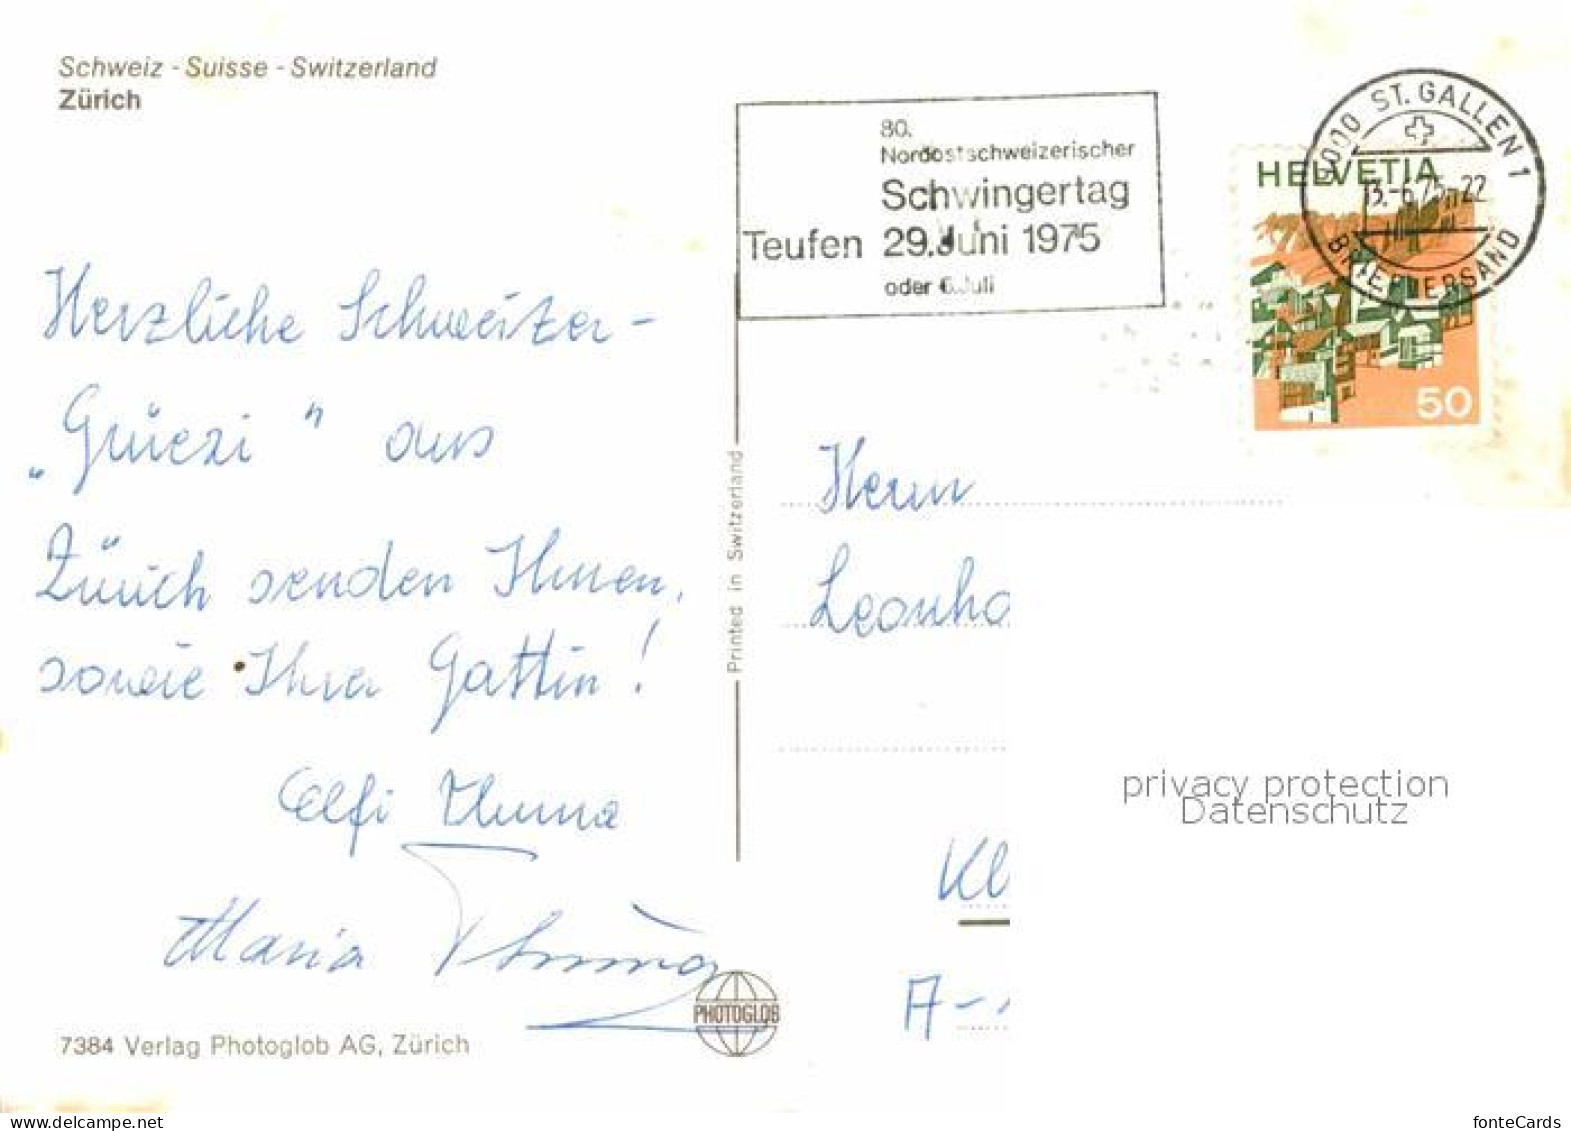 Schweiz - Suisse - Switzerland
Zürich
80.
Nordostschweizerischer
Schwingertag
Teufen 29. Juni 1975
oder 6. Juli
9000 ST. GALLEN 1
13.-6.75.-22
BRIEFVERSAND
HELVETIA
50
Herzliche Schweizer-
„Grüezi" aus
Zürich senden Ihnen,
sowie Ihrer Gattin!
Elfi
Maria
Printed in Switzerland
Herrn
Leonha
Kl
A-
privacy protection
Datenschutz
PHOTOGLOB
7384 Verlag Photoglob AG, Zürich
delcampe.net
fonteCards